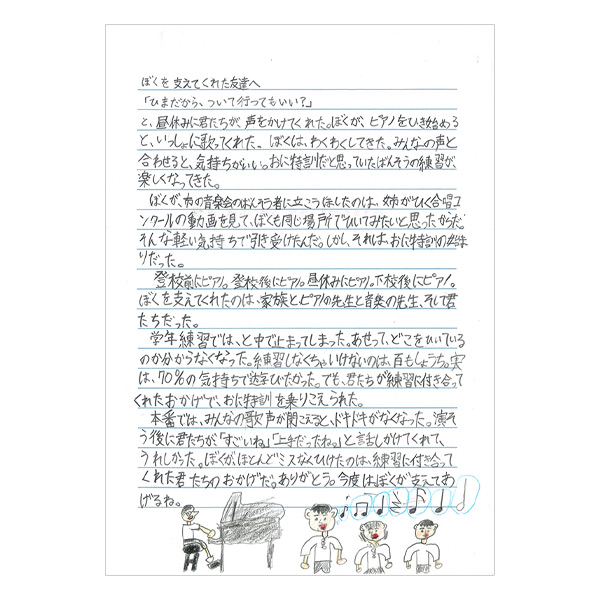 ぼくを支えてくれた友達へ
「ひまだから、ついて行ってもいい?」
と、昼休みに君たちが、声をかけてくれた。ぼくが、ピアノをひき始める
と、いっしょに歌ってくれた。ぼくは、わくわくしてきた。みんなの声と
合わせると、気持ちがいい。おに特訓だと思っていたばんそうの練習が、
楽しくなってきた。
ぼくが、市の音楽会のばんそう者に立こうほしたのは、姉がひく合唱コ
ンクールの動画を見て、ぼくも同じ場所でひいてみたいと思ったからだ。
そんな軽い気持ちで引き受けたんだ。しかし、それは、おに特訓の始ま
りだった。
登校前にピアノ。登校後にピアノ。昼休みにピアノ。下校後にピアノ。
ぼくを支えてくれたのは、家族とピアノの先生と音楽の先生、そして君
たちだった。
学年練習では、と中で止まってしまった。あせって、どこをひいている
のか分からなくなった。練習しなくちゃいけないのは、百もしょうち。実
は、70%の気持ちで遊びたかった。でも、君たちが練習に付き合って
くれたおかげで、おに特訓を乗りこえられた。
本番では、みんなの歌声が聞こえると、ドキドキがなくなった。演そ
う後に君たちが「すごいね」「上手だったね。」と話しかけてくれて、
うれしかった。ぼくが、ほとんどミスなくひけたのは、練習に付き合って
くれた君たちのおかげだ。ありがとう。今度はぼくが支えてあ
げるね。